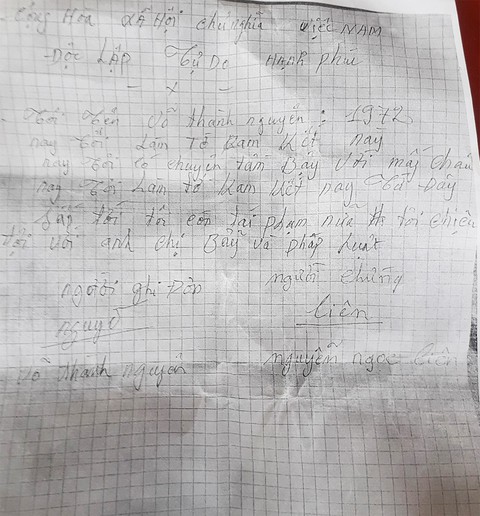 Cộng Hòa Xã Hội chủ nghĩa Việt NAM
- Độc LẬP Tự Do HẠNH phúc
- x -
- Tôi Tên Võ thành nguyên : 1972
nay Tôi Làm Tờ Cam Kết này
nay Tôi có chuyện tầm Bậy với mấy cháu
nay Tôi Làm tờ Cam Kết này Từ Đây
Sắp tới tôi còn tái phạm nữa thì tôi chịu
tội với anh chị Bảy và pháp Luật
người ghi Đơn người chứng
nguyê Liên
Võ thành nguyên nguyễn ngọc liên